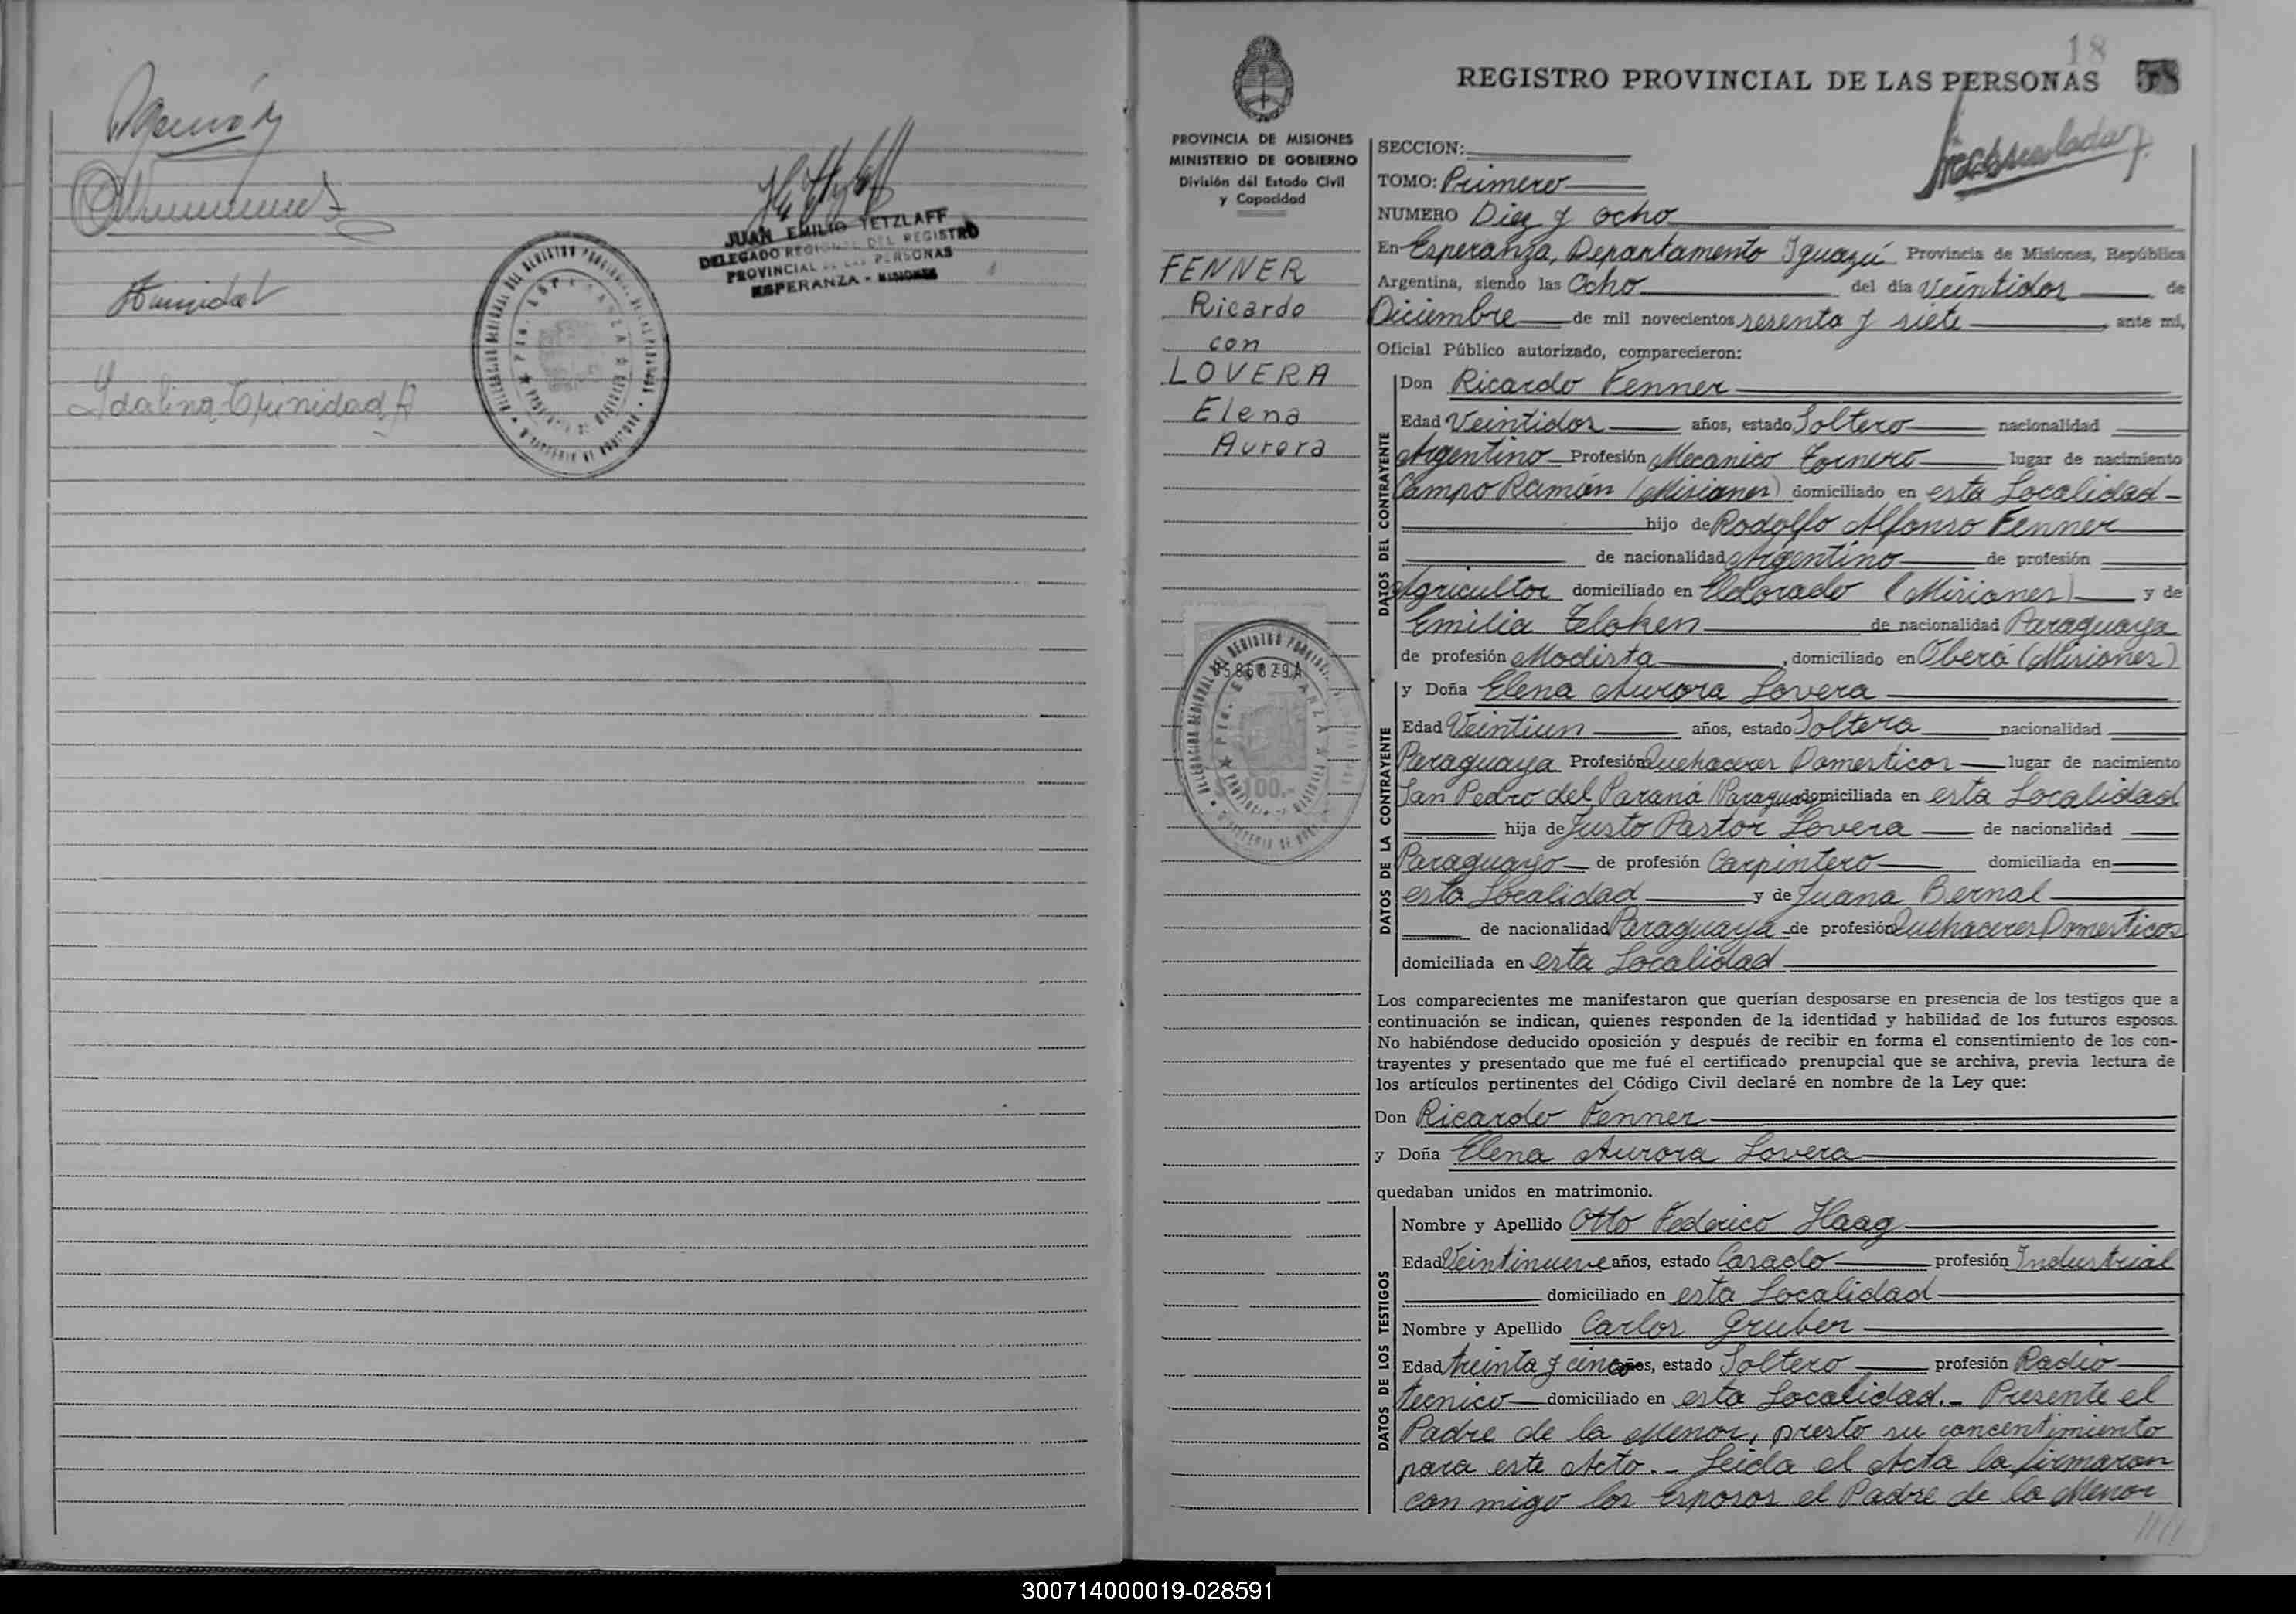 Idalina Trinidad A
JUAN EMILIO TETZLAFF
DELEGADO REGIONAL DEL REGISTRO
PROVINCIAL DE LAS PERSONAS
ESPERANZA - MISIONES
18
REGISTRO PROVINCIAL DE LAS PERSONAS
PROVINCIA DE MISIONES
MINISTERIO DE GOBIERNO
División del Estado Civil
y Capacidad
FENNER
Ricardo
con
LOVERA
Elena
Aurora
SECCION:
TOMO: Primero
NUMERO Diez y ocho
En Esperanza, Departamento Iguazú Provincia de Misiones, República
Argentina, siendo las Ocho del día Veintidos de
Diciembre de mil novecientos sesenta y siete, ante mí,
Oficial Público autorizado, comparecieron:
DATOS DEL CONTRAYENTE
Don Ricardo Fenner
Edad Veintidos años, estado Soltero nacionalidad
Argentino Profesión Mecanico Tornero lugar de nacimiento
Campo Ramón (Misiones) domiciliado en esta Localidad
hijo de Rodolfo Alfonso Fenner
de nacionalidad Argentino de profesión
Agricultor domiciliado en Eldorado (Misiones) y de
Emilia Teloken de nacionalidad Paraguaya
de profesión Modista, domiciliado en Oberá (Misiones)
DATOS DE LA CONTRAYENTE
y Doña Elena Aurora Lovera
Edad Veintiun años, estado Soltera nacionalidad
Paraguaya Profesión Quehaceres Domesticos lugar de nacimiento
San Pedro del Paraná (Paraguay) domiciliada en esta Localidad
hija de Justo Pastor Lovera de nacionalidad
Paraguayo de profesión Carpintero domiciliada en
esta Localidad y de Juana Bernal
de nacionalidad Paraguaya de profesión Quehaceres Domesticos
domiciliada en esta Localidad
Los comparecientes me manifestaron que querían desposarse en presencia de los testigos que a
continuación se indican, quienes responden de la identidad y habilidad de los futuros esposos.
No habiéndose deducido oposición y después de recibir en forma el consentimiento de los con-
trayentes y presentado que me fué el certificado prenupcial que se archiva, previa lectura de
los artículos pertinentes del Código Civil declaré en nombre de la Ley que:
Don Ricardo Fenner
y Doña Elena Aurora Lovera
quedaban unidos en matrimonio.
DATOS DE LOS TESTIGOS
Nombre y Apellido Otto Federico Haag
Edad Veintinueve años, estado Casado profesión Industrial
domiciliado en esta Localidad
Nombre y Apellido Carlos Gruber
Edad treinta y cinco años, estado Soltero profesión Radio
tecnico domiciliado en esta Localidad.- Presente el
Padre de la Menor, presto su concentimiento
para este Acto.- Leida el Acta la firmaron
con migo los Esposos el Padre de la Menor
300714000019-028591